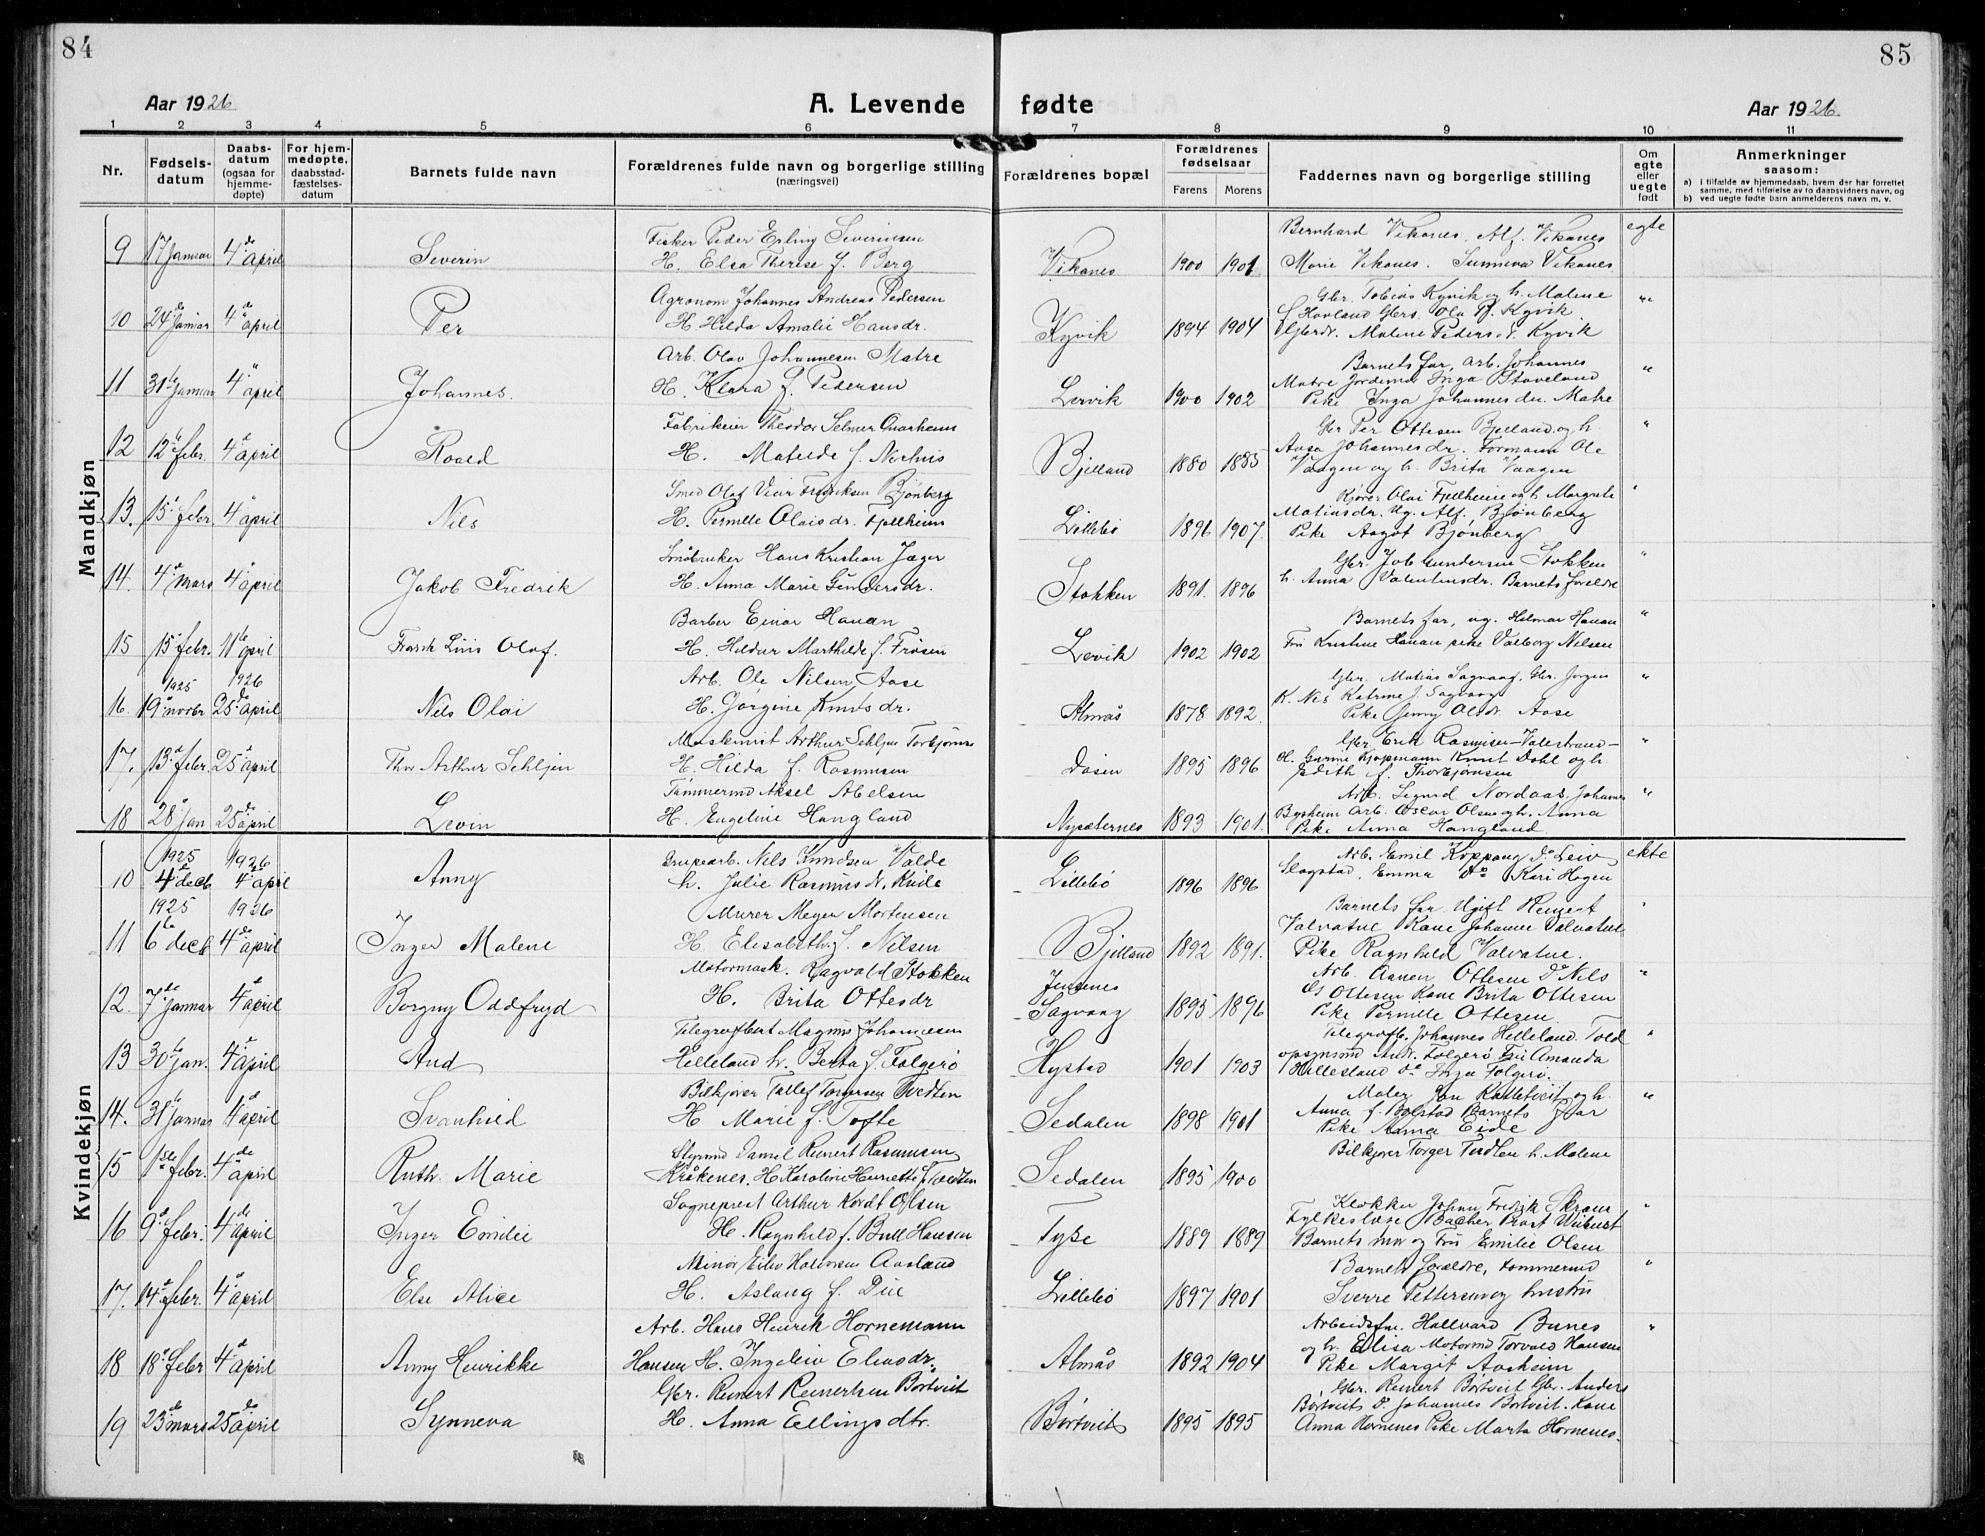 84
85
Aar 1926
A. Levende fødte
Aar 1926.
1 2 3 4 5 6 7 8 9 10 11
Nr.
Fødsels-datum
Daabs-datum (ogsaa for hjemme-døpte)
For hjem-medøpte, daabsstad-fæstelses-datum
Barnets fulde navn
Forældrenes fulde navn og borgerlige stilling (næringsvei)
Forældrenes bopæl
Forældrenes fødselsaar
Farens
Morens
Faddernes navn og borgerlige stilling
Om egte eller uegte født
Anmerkninger saasom:
a) i tilfælde av hjemmedaab, hvem der har forrettet samme, med tilføielse av to daabsvidners navn, og
b) ved uegte fødte barn anmelderens navn m. v.
Mandkjøn
9 17 Januar 4de april Severin
Fisker Peder Erling Severinsen
H. Elsa Therese f. Berg
Vikanes 1900 1901
Bernhard Vikanes. Alf. Vikanes
Marie Vikanes. Sunneva Vikanes
egte
10 24de Januar 4de april Per
Agronom Johannes Andreas Pedersen
H. Hilda Amalie Hansdr.
Kyvik 1894 1904
Gbr. Tobias Kyvik og h. Malene
f Hovland Gbrs. Ola P. Kyvik
Gbrdr. Malene Peders d. Kyvik
"
11 31te Januar 4" april Johannes.
Arb. Olav Johannesen Matre
H. Klara f. Pedersen
Lervik 1900 1902
Barnets far, arb. Johannes
Matre Jordemor Inga Staveland
Pike Inga Johannesdr. Matre
"
12 12te febr. 4de april Roald
Fabrikeier Theodor Selmer Qvarheim
H. Matilde f. Nerhus
Bjelland 1880 1885
Gbr Per Ottesen Bjelland og h.
Aasa Johannesdr. Formann Ole
Vaagen og h. Brita Vaagen
"
13. 15de febr. 4de april Nils
Smed Olaf Viar Fredriksen Bjønberg
H. Pernille Olaisdr. Fjellheim
Lillebø 1896 1907.
Kjører Olai Fjellheim og h Margrete
Matiasdr. Ug. Alf. Bjønberg
Pike Aagot Bjønberg
"
14. 4de mars 4de april Jakob Fredrik
Småbruker Hans Kristian Jæger
H. Anna Marie Gundersdr.
Stokken 1891. 1896
Gbr. Job Gundersen Stokken
h. Anna Valentinsdr. Barnets foreldre
"
15 15de febr. 11te april Frank Linis Olaf.
Barber Einar Hanan
H. Hildur Marthilde f. Frøsen
Lervik 1902 1902
Barnets far, ug. Hilmar Hanan
Fru Kristine Hanan pike Valborg Nilsen
"
1925 1926
16. 19de novbr 25de april Nils Olai
Arb. Ole Nilsen Aase
H. Jørgine Knutsdr.
Almås 1878 1892.
Gbr. Matias Sagvaag. Gbr. Jørgen
K. Nes Katrine J. Sagvaag
Pike Jenny Olsdr. Aase
"
17. 13de febr. 25de april Thor Arthur Sehljen
Maskinist Arthur Sehljen Torbjørns
H. Hilda f. Rasmusen
Dåsen 1895 1896
Gbr. Erik Rasmusen-Valestrand-
H. Gurine Kjøpmann Knut Dahl og h
Jødith f. Thorbjørnsen
"
18 28de Jan 25de april Levin
Tømmermd Aksel Abelsen
H. Engeline Haugland
Nysæternes 1893 1901.
Arb. Sigurd Nordaas, Johannes
Bysheim arb. Oscar Olsen og h. Anna
Pike Anna Haugland
"
Kvindekjøn
1925 1926
10 4de decb 4de april Anny
Grupearb. Nils Knudsen Valde
h. Julie Rasmus dr. Kvile
Lillebø 1896 1896
Arb. Emil Koppang Do Leiv
Slogstad, Emma Do Kari Hagen
ekte
1925 1926
11 6te decb 4de april Inger Malene
Murer Meyer Mortensen
H. Elisabeth f. Nilsen
Bjelland 1892 1891.
Barnets far. Ugift Reinert
Valvatne Kone Johanne Valvatne
Pike Ragnhild Valvatne.
"
12 7de Januar 4de april Borgny Oddfryd
Motormask. Ragvald Stokken
H. Brita Ottesdr
Jensenes
Sagvaag 1895 1896
Arb. Aanen Ottesen Do Nils
Ottesen Kone Brita Ottesen
Pike Pernille Ottesen.
"
13 30te jan. 4de april Aud
Telegrafbest Magnus Johannesen
Helleland h. Berta f. Folgerø
Hystad 1901 1903
Telegrafb. Johannes Helleland Told
opsynsmd Andr. Folgerø Fru Amanda
Hillesland Do Inga Folgerø.
"
14. 31de Januar 4de april Svanhild
Bilkjører Tollef Torgersen Tvedten
H. Marie f. Tofte
Sedalen 1898 1901
Maler Jon Kattetveit og h.
Anna f. Bolstad Barnets far
Pike Mama Eide
"
15 1ste febr. 4de april Ruth Marie
Styrmd Daniel Reinert Rasmussen
Kråkenes. H. Karoline Henriette f. Tvedten
Sedalen 1895 1900
Bilkjører Torger Tvedten h. Malene
16 9de febr. 4de april Inger Emilie
Sogneprest Arthur Kordt Olsen
H. Ragnhild f. Bull Hansen
Tyse 1889 1889
Klokker Johan Fredrik Skram
Fylkeslæge Bacher Prost
Barnets mor og Fru Emilie Olsen
"
17. 14de febr. 4de april Else Alice
Minør Eilev Halvorsen Aasland
H. Aslaug f. Due
Lillebø 1897 1901
Barnets foreldre, tømmermd
Sverre Pettersen og hustru
"
18 18de febr 4de april Anny Henrikke
Arb. Hans Henrik Hornemann
Hansen H. Ingeleiv Eliasdr.
Almås 1892 1904
Arbeidsfm. Hallvard Bunes
og h. Elisa Motormd Torvald Hansen
Pike Margit Aasheim
"
19 23de mars 25de april Synneva
Gbr. Reinert Reinertsen Børtveit
H. Anna Ellingsdtr.
Børtveit 1895 1895
Gbr. Reinert Børtveit Gbr. Anders
Børtveit Do Johannes Børtveit. Kone
Anna Hornenes Pike Marta Hornenes.